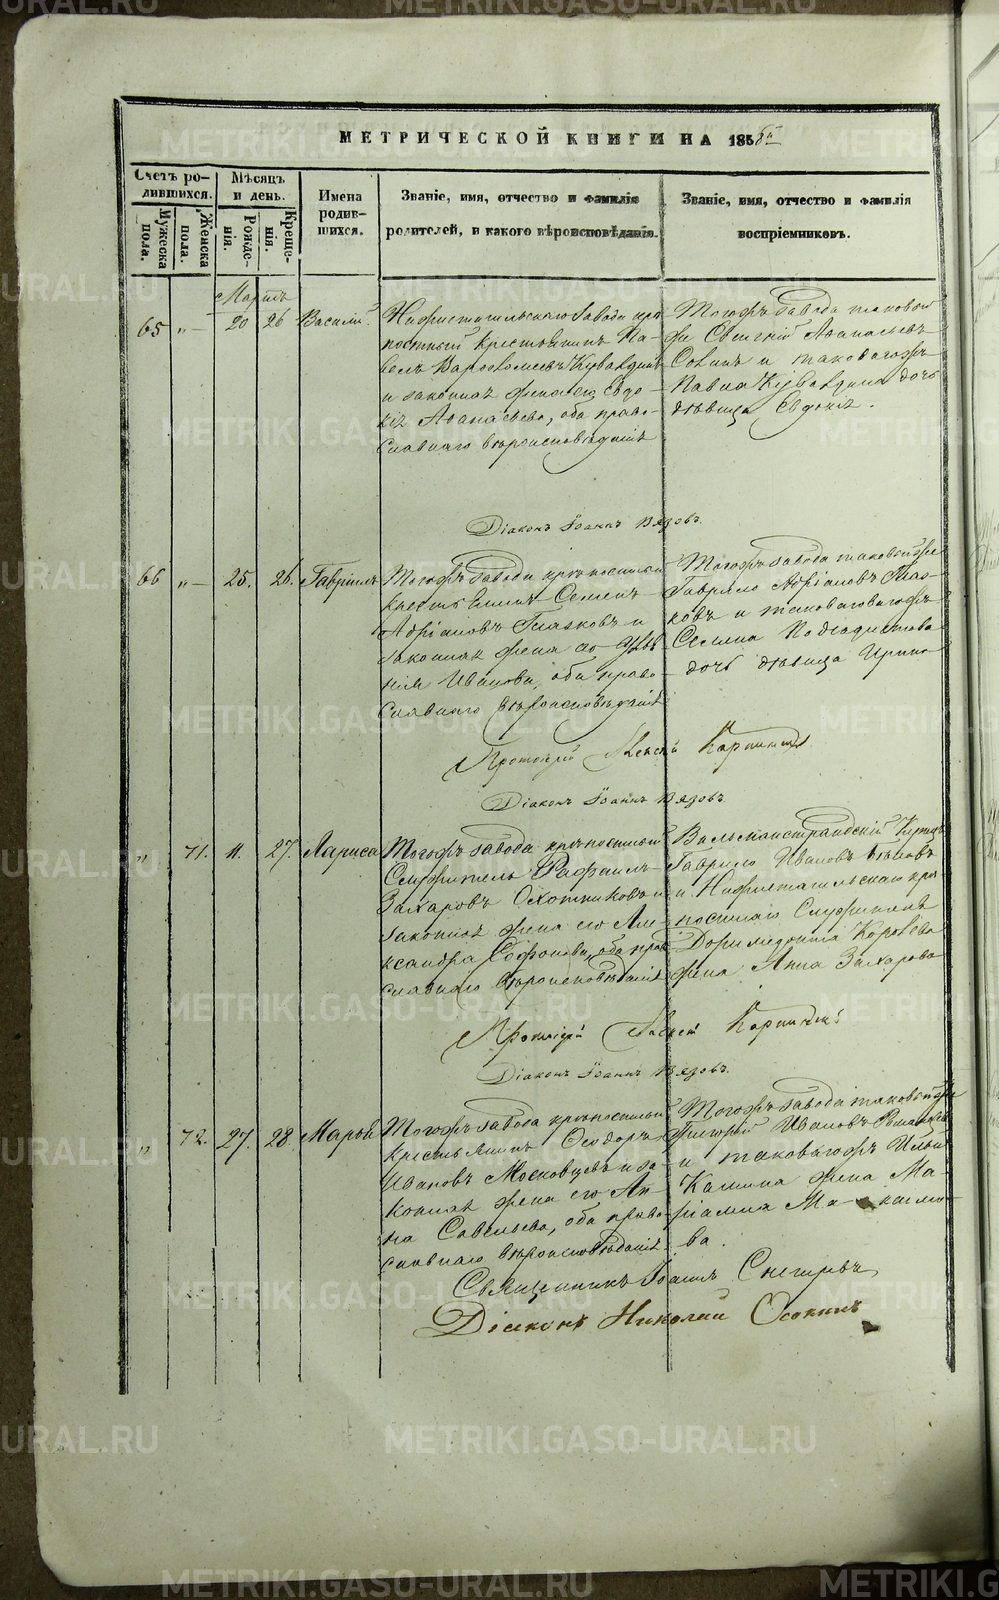 МЕТРИЧЕСКОЙ КНИГИ НА 185
Счетъ ро-
дившихся.
Мужеска
пола.
Женска
пола.
Мѣсяцъ
и день.
Рожде-
нія.
Креще-
нія.
Имена
родив-
шихся.
Званіе, имя, отчество и фамилія
родителей, и какого вѣроисповѣданія.
Званіе, имя, отчество и фамилія
воспріемниковъ.
Мартъ
65 „ 20 26 Василій.
Нижнетагильскаго завода крѣ-
постный крестьянинъ Па-
велъ Варѳоломеевъ
и законная жена его Евдо-
кія Аѳанасьева, оба право-
славнаго вѣроисповѣданія
Тогожъ завода таковой
же Евгеній Аѳанасьевъ
и таковагожъ
Павла дочь
дѣвица Евдокія.
Діаконъ Іоаннъ Вязовъ.
66 „ 25. 26. Гавріилъ
Тогожъ завода крѣпостный
крестьянинъ Семенъ
Адріановъ Глазковъ и
законная жена его Уль-
нія Иванова, оба право-
славнаго вѣроисповѣданія
Тогожъ завода таковой же
Гаврило Адріановъ Глаз-
ковъ и таковаго
Семена
дочь дѣвица Ирина
Протоіерей Алексій Карпинскій
Діаконъ Іоаннъ Вязовъ.
„ 71. 27. Лариса
Тогожъ завода крѣпостный
Служитель Рафаилъ
Захаровъ Охотниковъ и
законная жена его Але-
ксандра Софонова, оба пра-
славнаго вѣроисповѣданія
Вильманстрандскій Купецъ
Гаврило Ивановъ Бѣловъ
и Нижнетагильскаго крѣ-
постнаго Служителя
Доримедонта
жена Анна Захарова
Протоіерей Алексій Карпинскій
Діаконъ Іоаннъ Вязовъ.
„ 72. 27. 28. Марѳа
Тогожъ завода крѣпостный
крестьянинъ Ѳеодоръ
Ивановъ Московцевъ и за-
конная жена его Ан-
на Савельева, оба право-
славнаго вѣроисповѣданія
Тогожъ завода таковой же
Григорій Ивановъ
и таковагожъ Ильи
Калина жена Ма-
ріамна Ма- ксимо-
ва.
Священникъ Іоаннъ Снегиревъ
Діаконъ Николай Осокинъ
METRIKI.GASO-URAL.RU